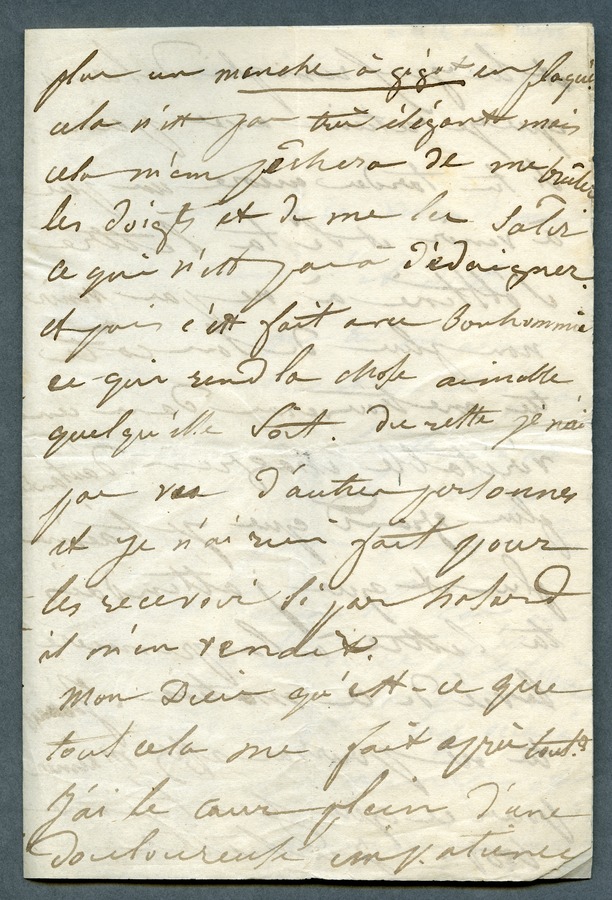 plus un manche à gigot en plaqué
cela n'est pas très élégant mais
cela m'empêchera de me brûler
les doigts et de me les salir
ce qui n'est pas a dédaigner.
et puis c'est fait avec Bonhommie
ce qui rend la chose aimable
quelqu'elle soit. Du reste je n'ai
pas vu d'autres personnes
et je n'ai rien fait pour
les recevoir si par hasard
il m'en vendit.
Mon Dieu qu'est-ce que
tout cela me fait après tout?
J'ai le cœur plein d'une
douloureuse impatience